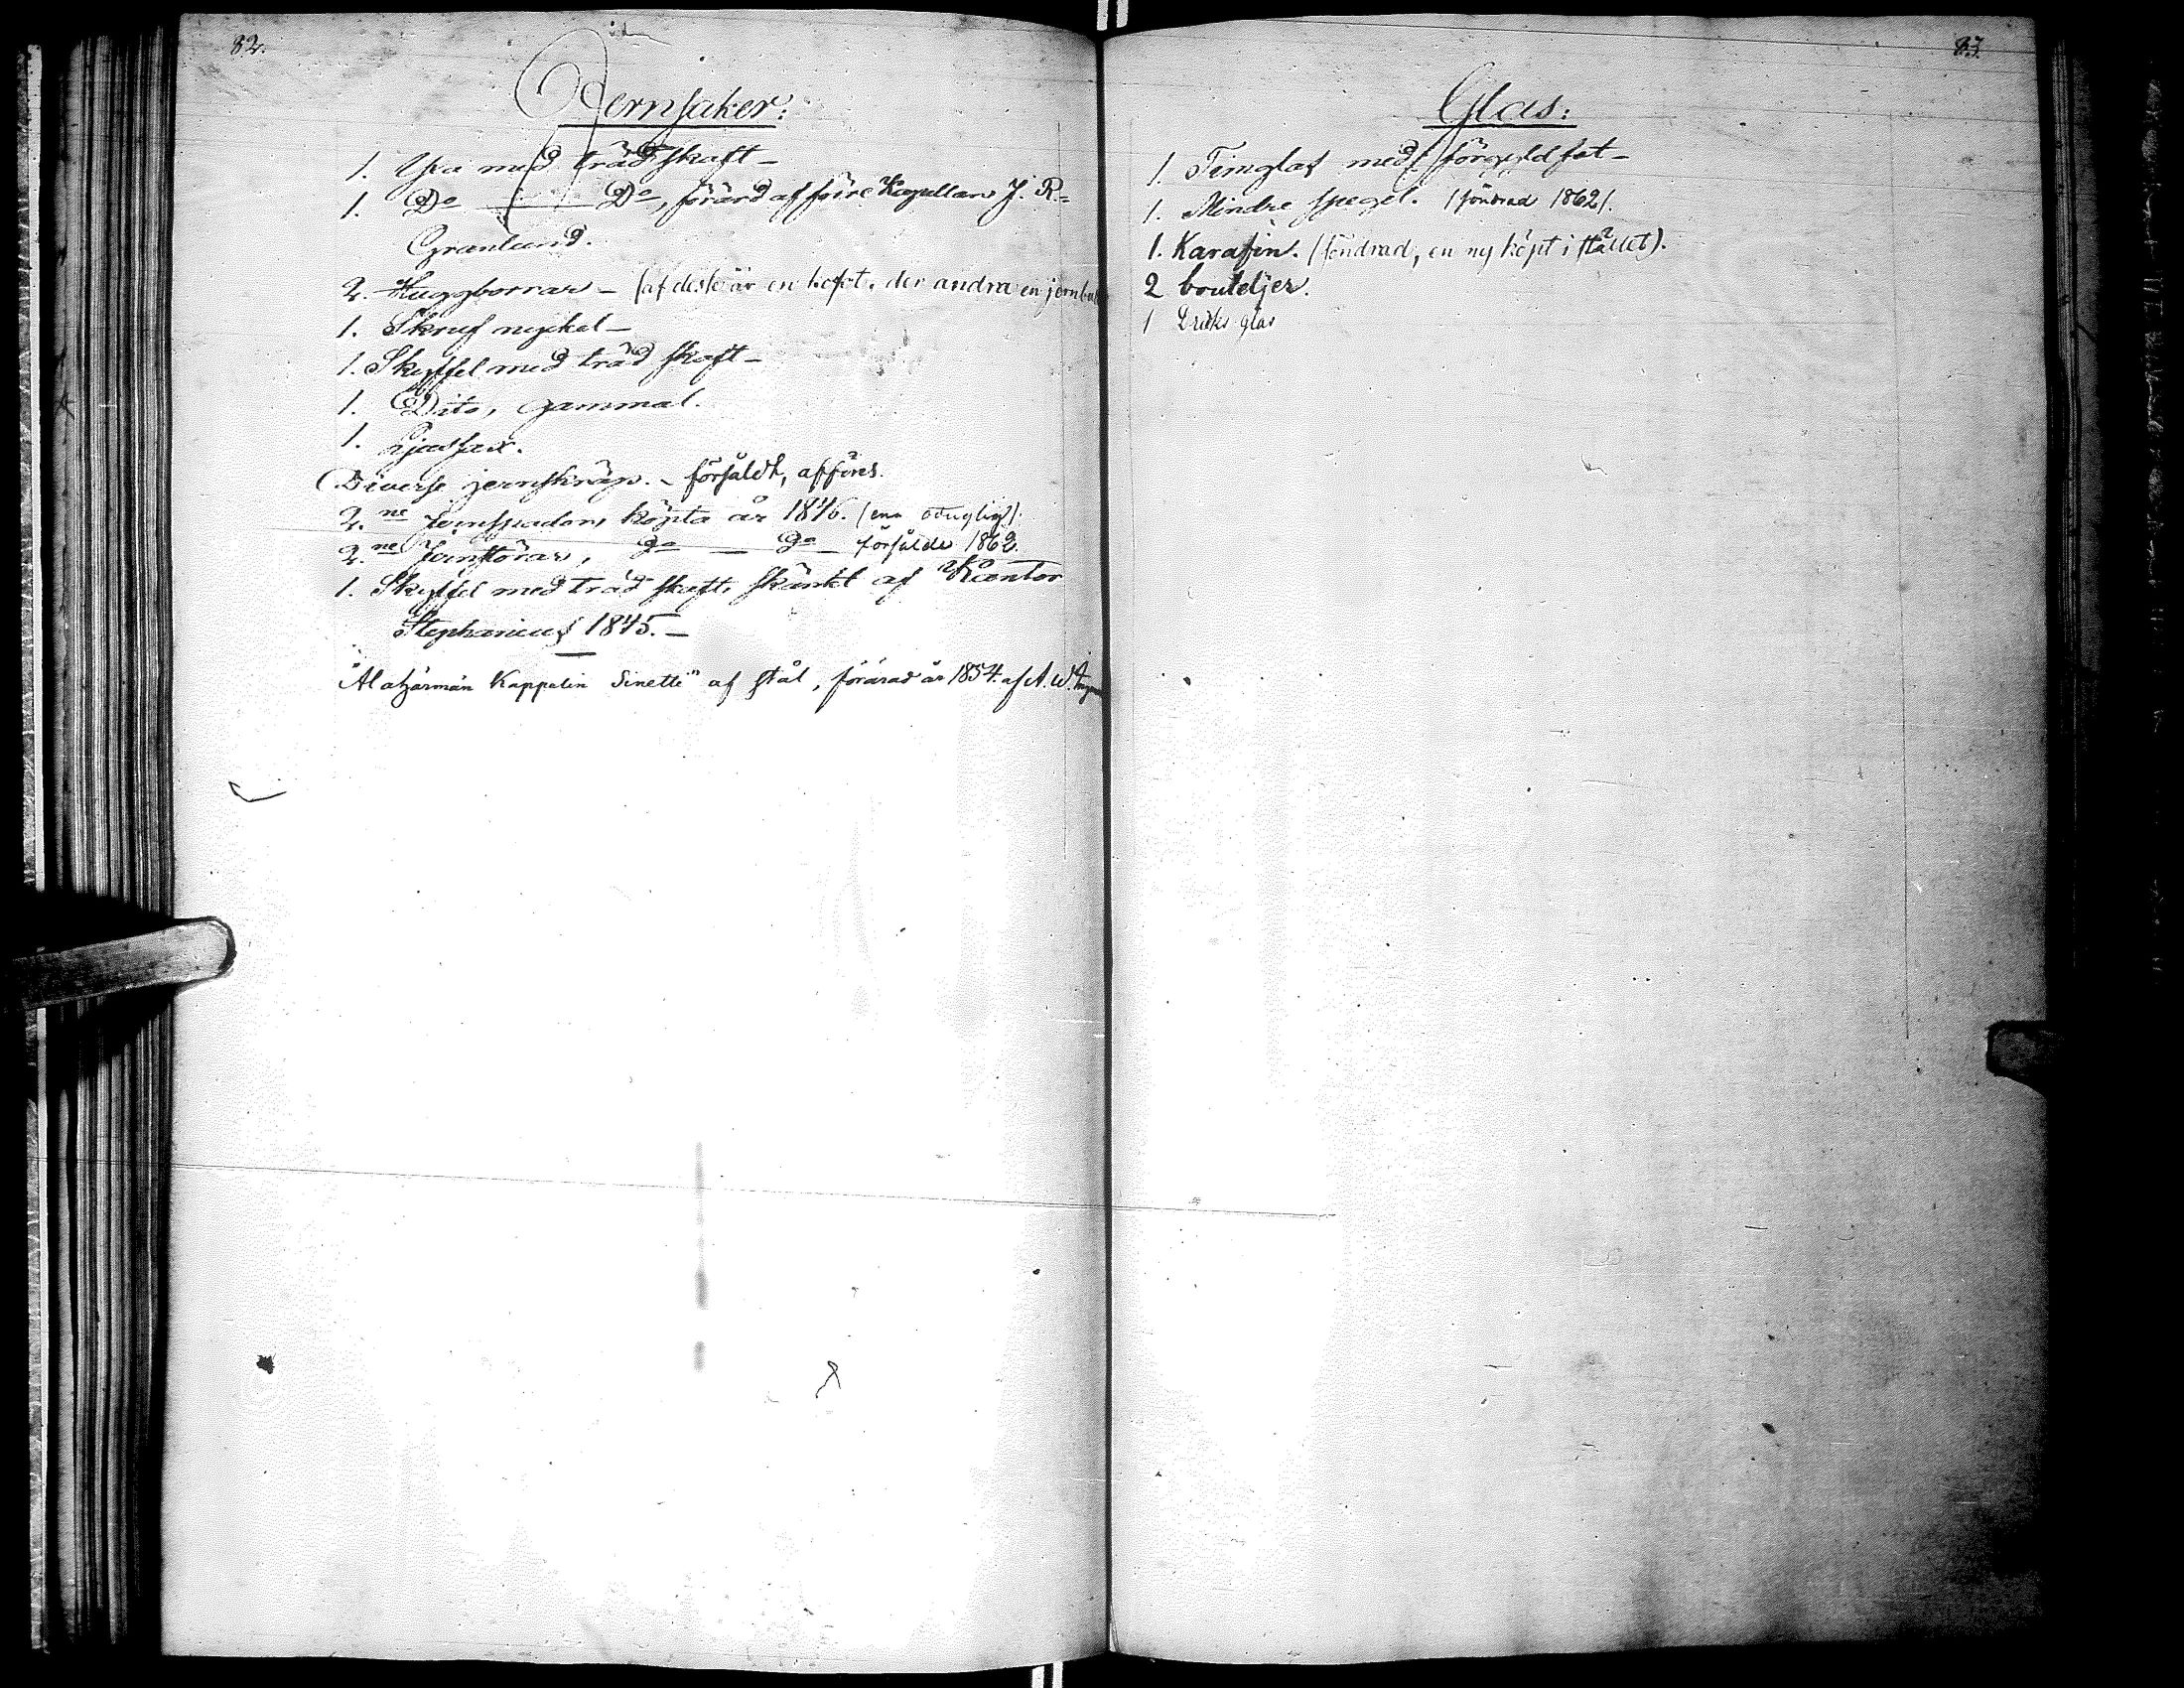 82.
Jernsaker:
1. Yxa med träd skaft –
1. Do — Do, förärd af förre Kapellan J. R.
Granlund.
2. Huggborrar – (af desse är en kofot, den andra en
1. Skruf nyckel –
1. Skyffel med träd skaft –
1. Dito, gammal.
1. Ljussax.
Diverse jernskräp. – försåldt, afföres.
2.ne Jernspadar, köpta år 1846. (ena oduglig).
2.ne Jernstörar, Do — Do – försålde 1862.
1. Skyffel med träd skaft, skänkt af Kantor
Stephanius 1845. –
"Alahärmän Kappelin Sinetti" af stål, förärad år 1854. af A. W.
83.
Glas:
1. Timglas med förgyld fot –
1. Mindre spegel. (söndrad 1862).
1. Karafin. (söndrad, en ny köpt i stället).
2 bouteljer.
1 Dricks glas